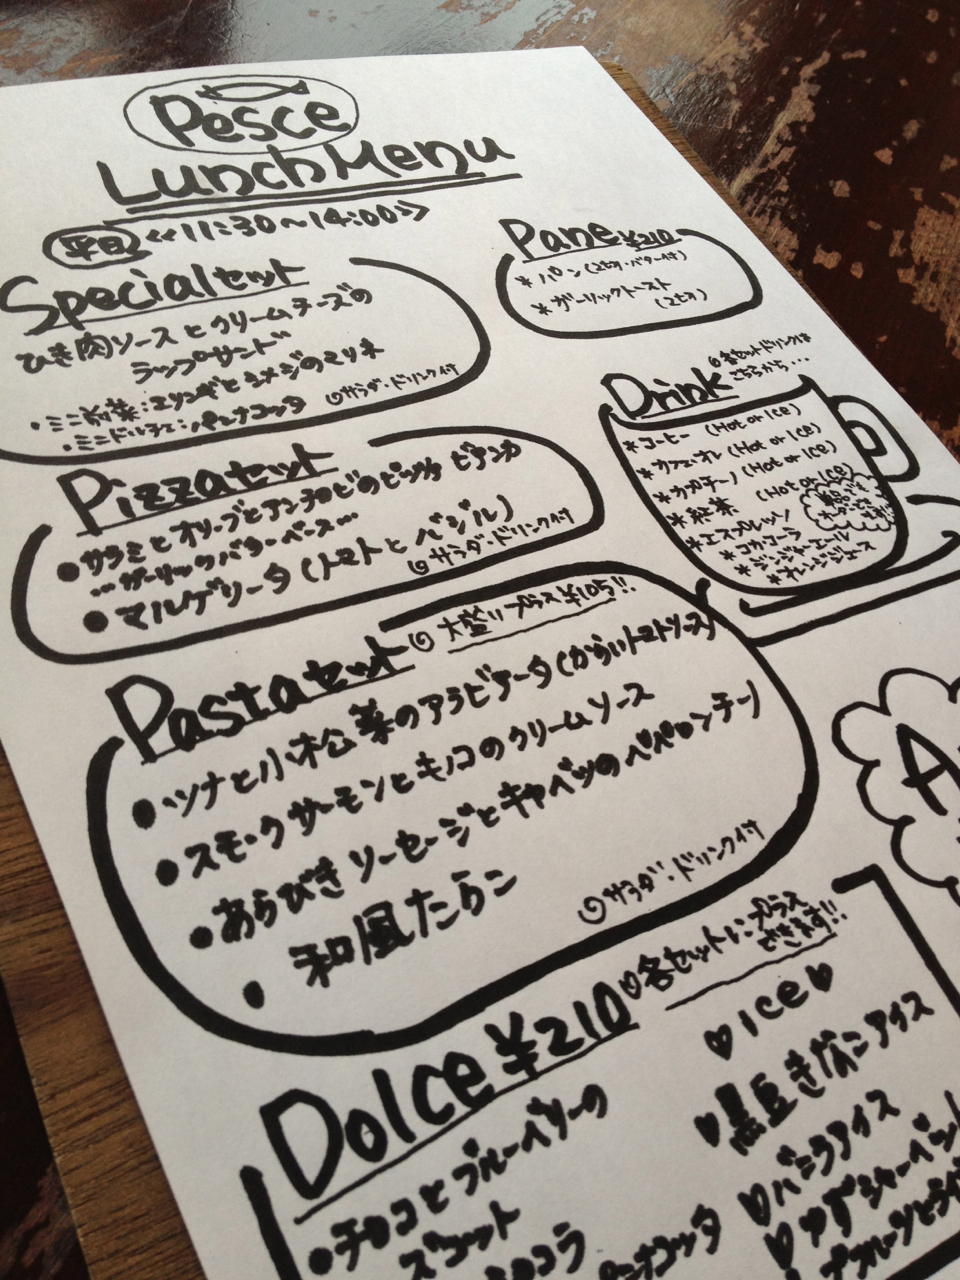 Pesce
Lunch Menu
平日 <<11:30~14:00>>
Specialセット
ひき肉ソースとクリームチーズの
ラップサンド
・ミニ前菜:エリンギとシメジのマリネ
・ミニドルチェ:パンナコッタ
サラダ・ドリンク付
Pane ¥210
* パン(2切れ・バター付)
* ガーリックトースト
(2切れ)
Pizzaセット
● サラミとオリーブとアンチョビのピッツァ ビアンカ
…ガーリックバターベース…
● マルゲリータ(トマトとバジル)
サラダ・ドリンク付
各セットドリンクは
こちらから…
Drink
*コーヒー (Hot or Ice)
*カフェオレ (Hot or ICE)
*カプチーノ (Hot or ICE)
*紅茶 (Hot or ICE)
*エスプレッソ
*コカ・コーラ
*ジンジャーエール
*オレンジジュース
単品でも
Pastaセット 大盛りプラス¥105!!
● ツナと小松菜のアラビアータ(からいトマトソース)
● スモークサーモンとキノコのクリームソース
● あらびきソーセージとキャベツのペペロンチーノ
● 和風たらこ
サラダ・ドリンク付
A
Dolce ¥210 ♡各セットにプラス
できます!!
● チョコとブルーベリーの
スコット
コラ
ンナコッタ
♥Ice♥
♥黒豆きなこアイス
♥バニラアイス
♥ゆずシャーベット